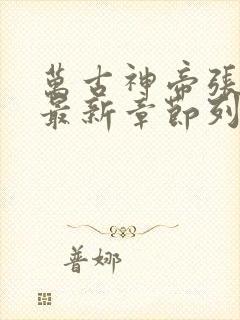 萬古神帝張
最新章節列
普娜